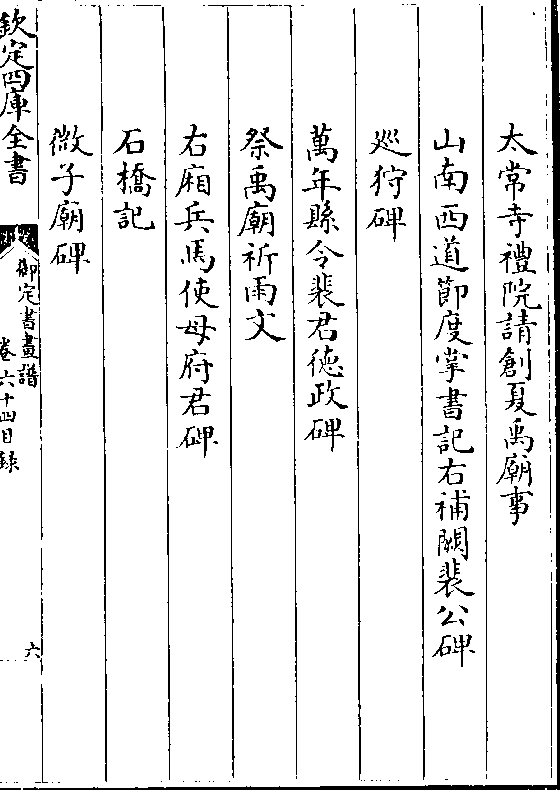 太常寺禮院請創夏禹廟事
山南西道節度掌書記右補闕裴公碑
巡狩碑
萬年縣令裴君德政碑
祭禹廟祈雨文
右廂兵馬使母府君碑
石橋記
微子廟碑
欽定四庫全書
御定書畫譜
卷六十四目錄
六